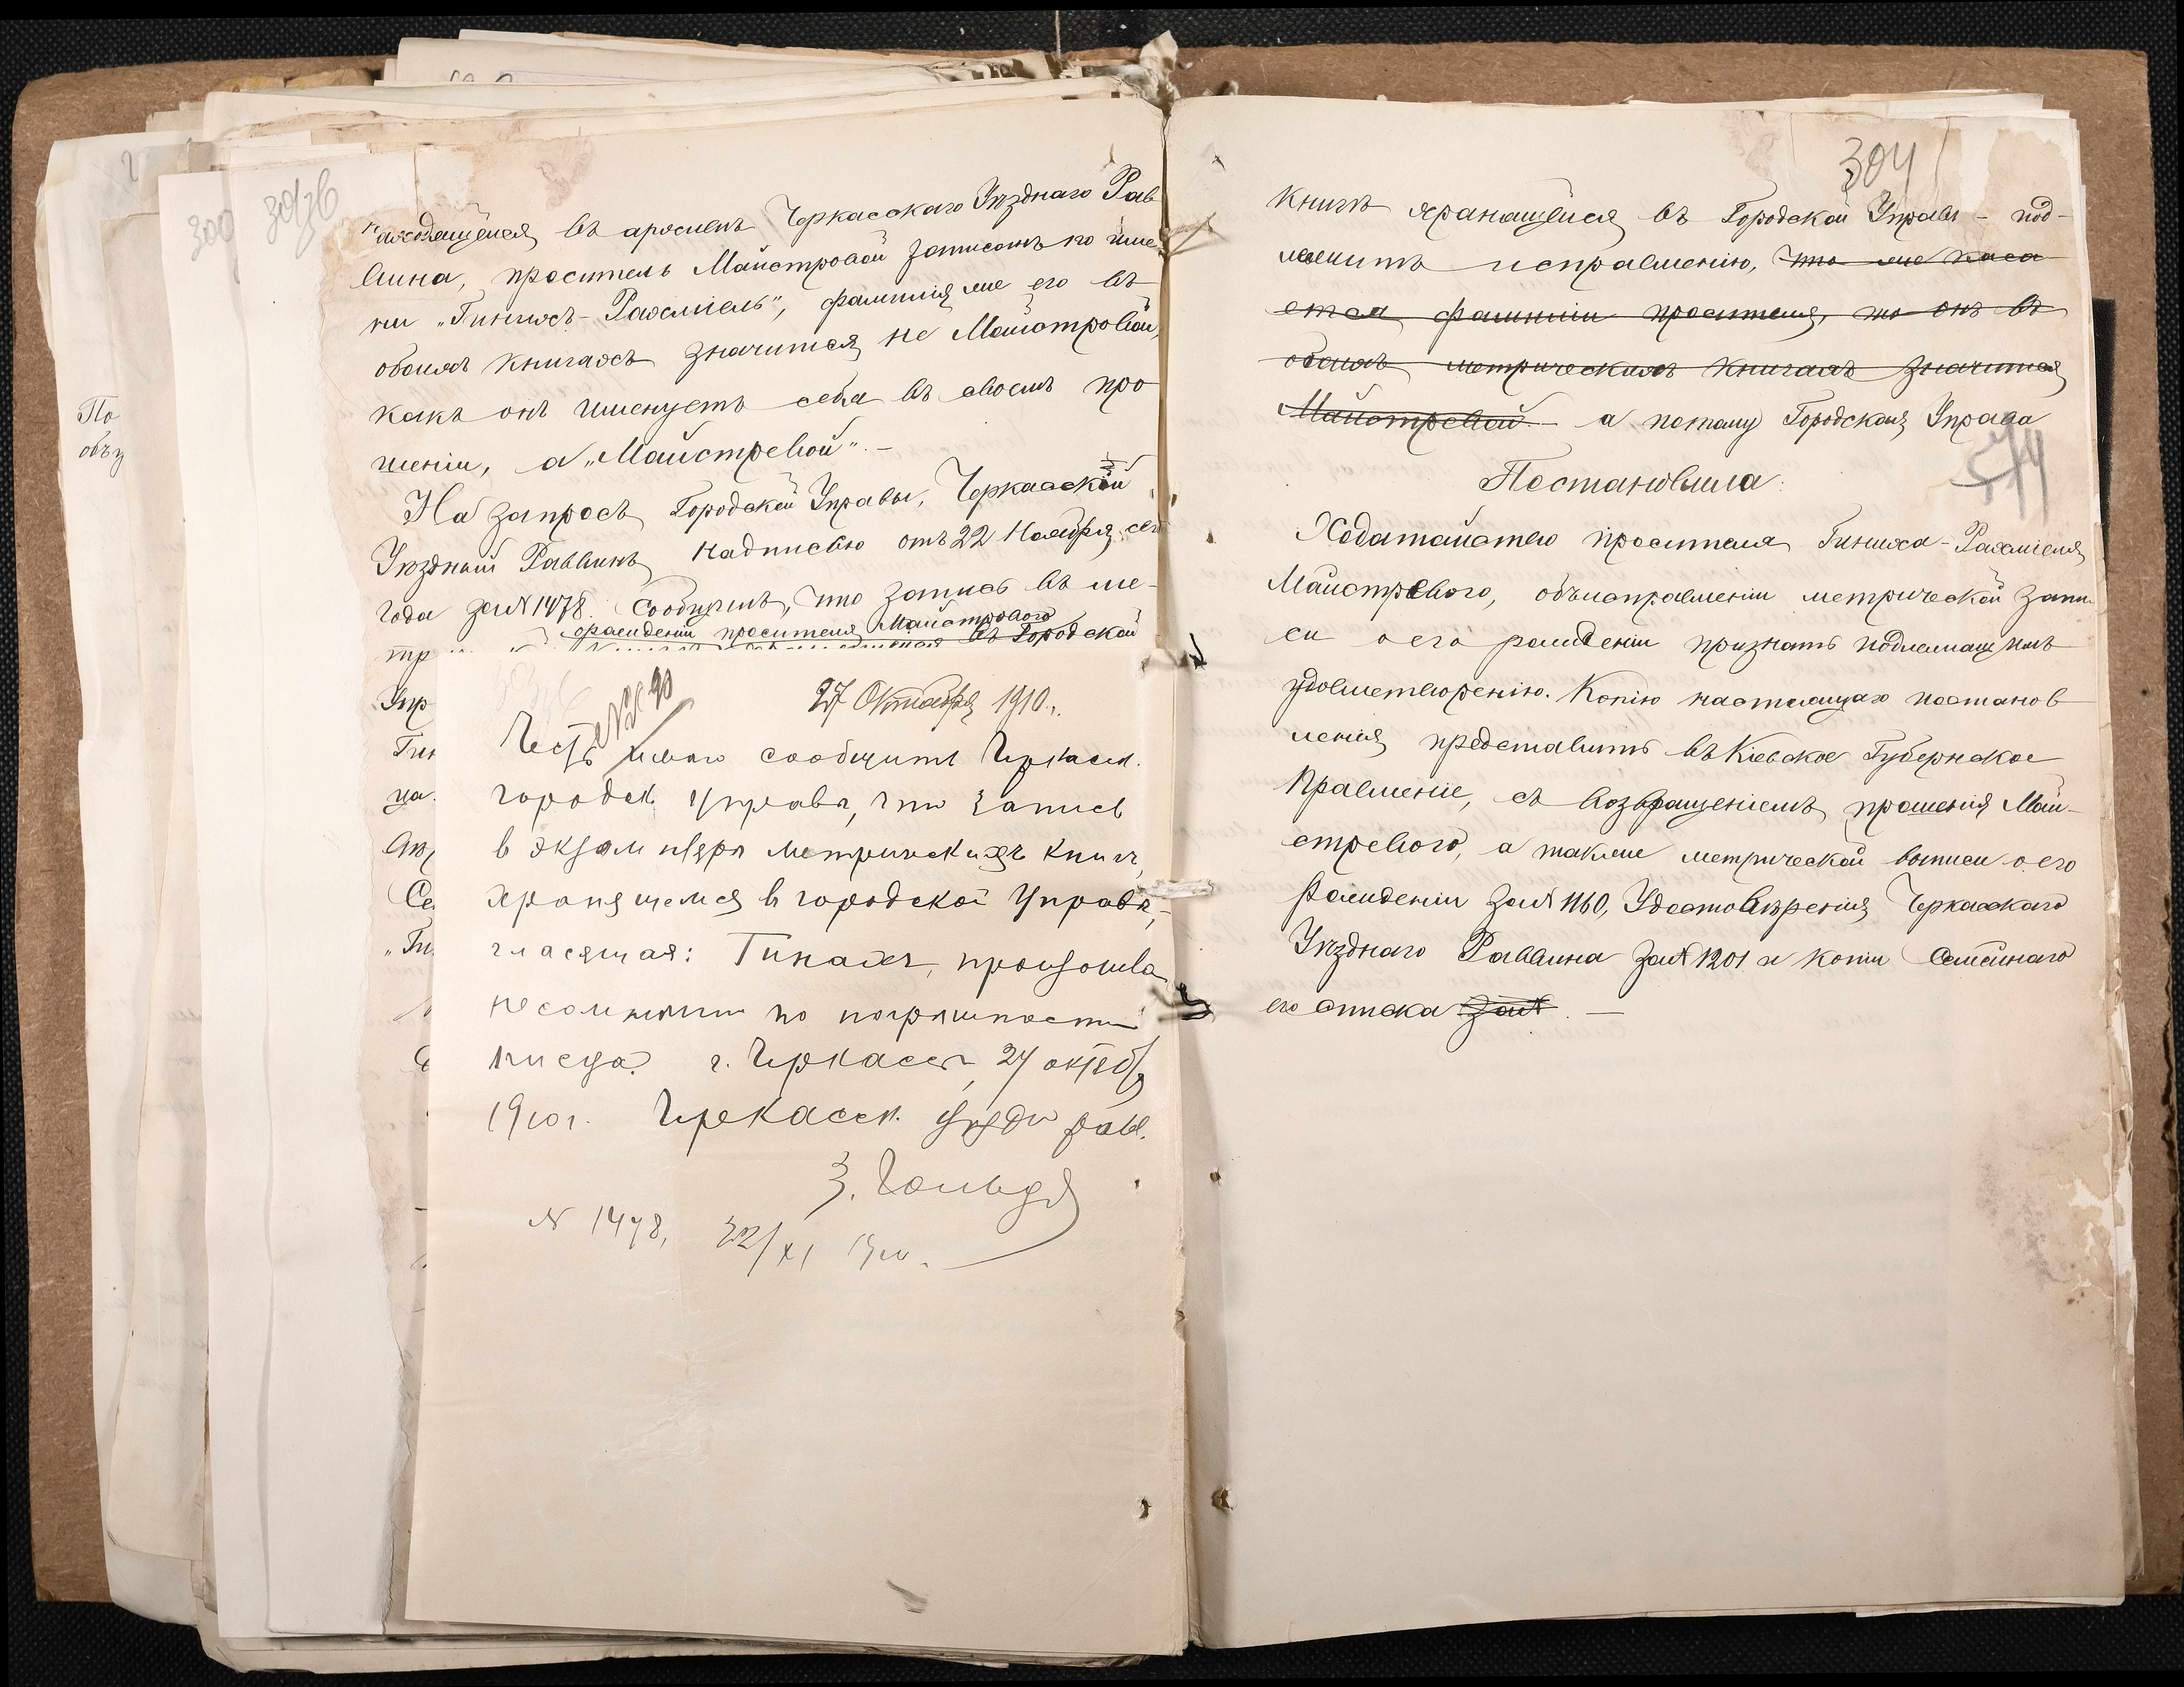 300
303б
По
объ
находящейся въ архивѣ Черкасскаго Уѣзднаго Рав
вина, проситель Майстровой записанъ по име
ни „Пинхосъ-Рахміель", фамилія же его въ
обоихъ книгахъ значится не Майстровой,
какъ онъ именуетъ себя въ своемъ про
шеніи, а „Майстревой".-
На запросъ Городской Управы, Черкасскій
Уѣздный Раввинъ надписью отъ 22 Ноября сего
года за № 1478. Сообщилъ, что запись въ ме-
рожденіи просителя Майстрового
тр въ Городской
Упр
Пин
ца.
Се
27 Октября 1910 г.
Честь имѣю сообщить Черкасск.
городск. Управѣ, что запись
в экземплярѣ метрическихъ книгъ,
хранящемся в городской Управѣ,-
гласящая: Пинахъ, произошла
несомнѣнно по погрѣшности
писца. г. Черкассы, 27 октября
1910 г. Черкасск. уѣздн. равв.
№ 1478, 22/XI 1910.
304
книгѣ хранящейся въ Городской Управѣ - под-
лежитъ исправленію, что же каса
ется фамиліи просителя, то онъ въ
обоихъ метрическихъ книгахъ значится
Майстревой - а потому Городская Управа
544
Постановила:
Ходатайство просителя Пинхоса-Рахміеля
Майстревого, объ исправленіи метрической запи
си о его рожденіи признать подлежащимъ
удовлетворенію. Копію настоящаго постанов
ленія представить въ Кіевское Губернское
Правленіе, съ возвращеніемъ прошенія Май-
стревого, а также метрической выписи о его
рожденіи за № 1160, Удостовѣренія Черкасскаго
Уѣзднаго Раввина за № 1201 и копіи Семейнаго
его списка за № . —